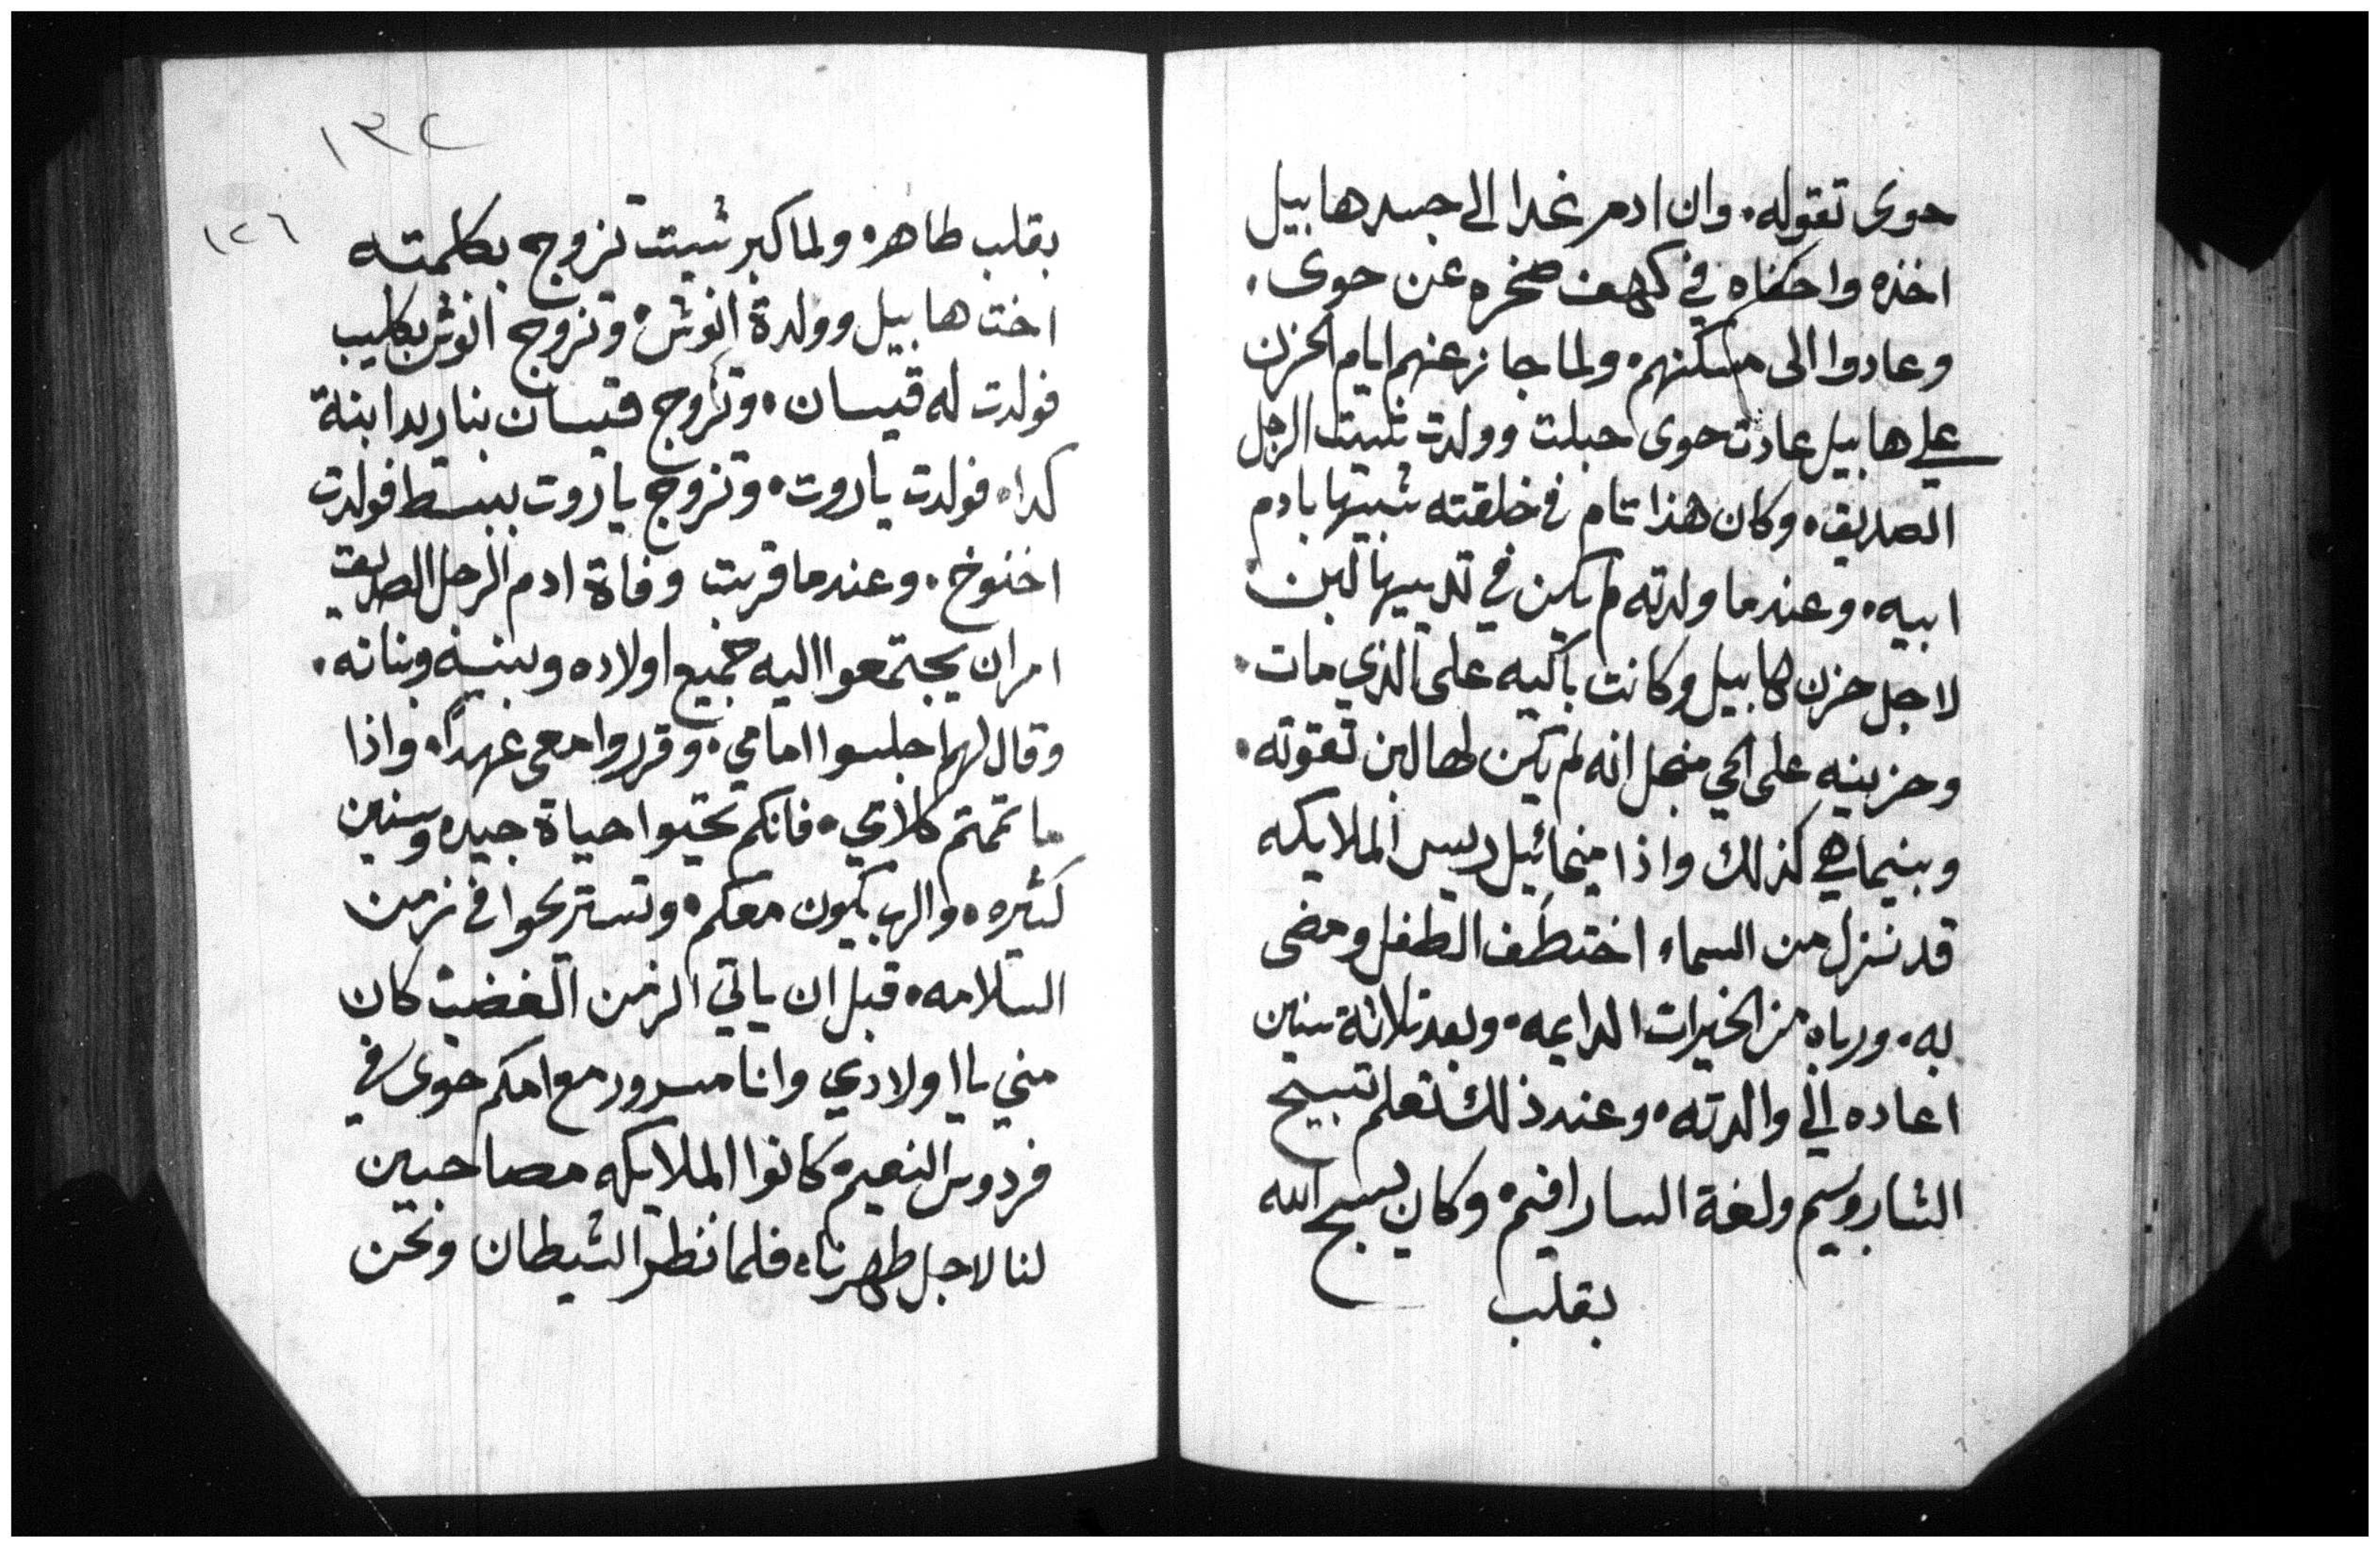 حوى تقوله. وان ادم غدا الى جسد هابيل
اخذه واخفاه في كهف صخره عن حوى.
وعادوا الى مسكنهم. ولما جاز عنهم ايام الحزن
علي هابيل عادت حوى حبلت وولدت شيت الرجل
الصديق. وكان هذا تام في خلقته شبيها بادم
ابيه. وعندما ولدته لم يكن في تدييها لبن
لاجل حزن هابيل وكانت باكيه على الذي مات.
وحزينه على الحي منجل انه لم يكن لها لبن تقوته.
وبينما هي كذلك واذا ميخائيل رييس الملايكه
قد نزل من السماء اختطف الطفل ومضى
به. ورباه من الخيرات الدايمه. وبعد تلاتة سنين
اعاده الي والدته. وعند ذلك تعلم تسبيح
الشاروبيم ولغة السارافيم. وكان يسبح الله
بقلب
١٣٢
١٢٦
بقلب طاهر. ولما كبر شيت تزوج بكلمته
اخت هابيل وولدة انوش. وتزوج انوش بكليب
فولدت له قيسان. وتزوج قيسان بناريدا ابنة
كدا. فولدت ياروت. وتزوج ياروت ببسط فولدت
اخنوخ. وعندما قربت وفاة ادم الرجل الصديق
امران يجتمعوا اليه جميع اولاده وبنيه وبناته.
وقال لهم اجلسوا امامي. وقرروا معي عهداً. واذا
ما تممتم كلامي. فانكم تحيوا حياة جيده وسنين
كثيره. والرب يكون معكم. وتستريحوا في زمن
السلامه. قبل ان ياتي الزمن الغضب كان
مني يا اولادي وانا مسرور مع امكم حوى في
فردوس النعيم. كانوا الملايكه مصاحبين
لنا لاجل طهرنا. فلما نظر الشيطان ونحن